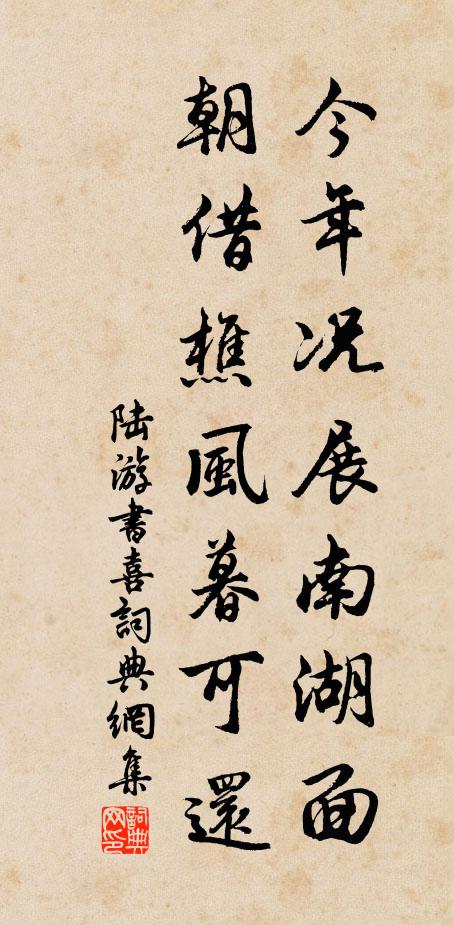 今年况展南湖面
朝借樵風暮可還
陆游書喜詞典網集
詞典网印